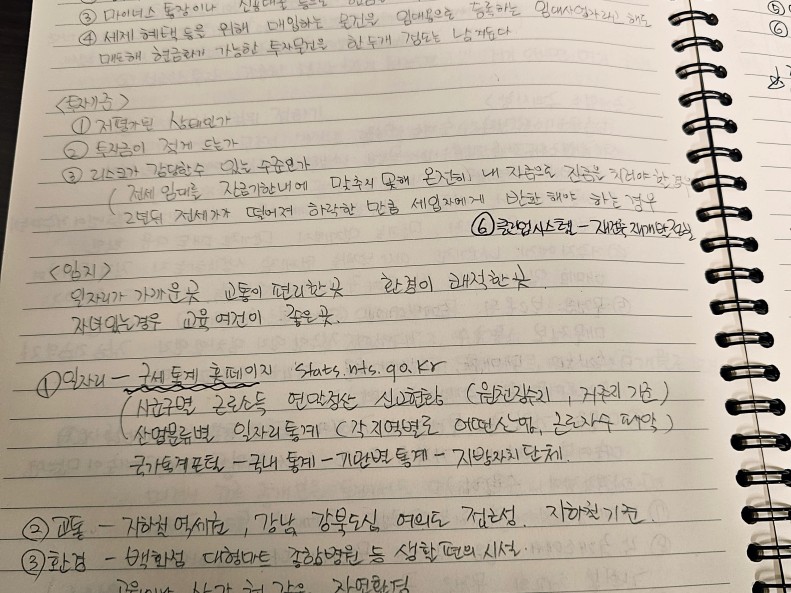 ③ 마이너스 통장이나
④ 세제 혜택 등을 위해 매입하는 물건을 임대용으로 등록하는 임대사업자라고 해도
매도해 현금화가 가능한 투자물건을 한두개 정도는 남겨둔다
<투자기준>
① 저평가된 상태인가
② 투자금이 적게 드는가
③ 리스크가 감당할수 있는 수준인가
( 전세 임대를 잔금기한내에 맞추지 못해 온전히 내 자금으로 잔금을 치러야 할 경우
2년뒤 전세가가 떨어져 하락한 만큼 세입자에게 반환 해야 하는 경우
⑥ 클린업시스템 - 재건축 재개발
<입지>
일자리가 가까운곳 교통이 편리한곳 환경이 쾌적한곳.
자녀있는경우 교육 여건이 좋은곳.
① 일자리 - 국세통계 홈페이지 stats.nts.go.kr
( 시군구별 근로소득 연말정산 신고현황 (원천징수지, 거주지 기준)
산업분류별 일자리통계 (각 지역별로 어떤산업, 근로자수 파악)
국가통계포털 - 국내 통계 - 기관별 통계 - 지방자치 단체.
② 교통 - 지하철 역세권, 강남 강북도심 여의도 접근성. 지하철 기준.
③ 환경 - 백화점 대형마트 종합병원 등 생활편의 시설.
공원이나 산 강 천 같은 자연환경
⑤
⑥